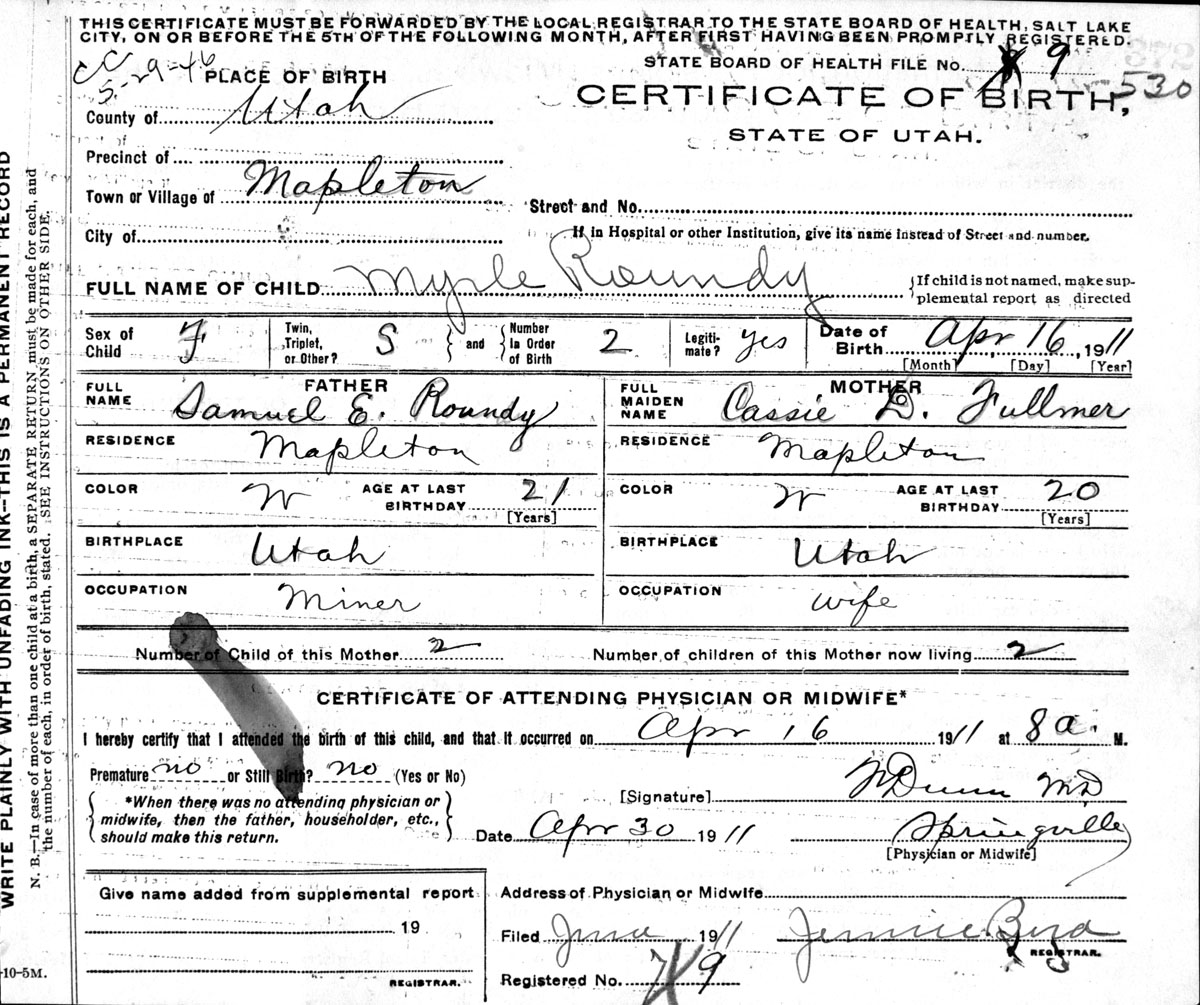 THIS CERTIFICATE MUST BE FORWARDED BY THE LOCAL REGISTRAR TO THE STATE BOARD OF HEALTH, SALT LAKE
CITY, ON OR BEFORE THE 5TH OF THE FOLLOWING MONTH, AFTER FIRST HAVING BEEN PROMPTLY REGISTERED.
CC
5-29-46
PLACE OF BIRTH
STATE BOARD OF HEALTH FILE NO. 9
530
County of Utah
CERTIFICATE OF BIRTH,
STATE OF UTAH.
Precinct of
Town or Village of Mapleton
Street and No.
City of
If in Hospital or other Institution, give its name instead of Street and number.
FULL NAME OF CHILD Myrle Roundy {If child is not named, make sup-
plemental report as directed
Sex of Child F Twin, Triplet, or Other? S } and { Number in Order of Birth 2 Legiti-mate? Yes Date of Birth Apr 16, 1911
[Month] [Day] [Year]
FATHER MOTHER
FULL NAME Samuel E. Roundy FULL MAIDEN NAME Cassie D. Fullmer
RESIDENCE Mapleton RESIDENCE Mapleton
COLOR W AGE AT LAST BIRTHDAY 21 [Years] COLOR W AGE AT LAST BIRTHDAY 20 [Years]
BIRTHPLACE Utah BIRTHPLACE Utah
OCCUPATION Miner OCCUPATION wife
Number of Child of this Mother 2 Number of children of this Mother now living 2
CERTIFICATE OF ATTENDING PHYSICIAN OR MIDWIFE*
I hereby certify that I attended the birth of this child, and that it occurred on Apr 16 1911 at 8 a. M.
Premature no or Still Birth? no (Yes or No)
[Signature] Dunn MD
{*When there was no attending physician or
midwife, then the father, householder, etc.,
should make this return.}
Date Apr 30 1911 Springville
[Physician or Midwife]
Give name added from supplemental report
Address of Physician or Midwife
19
Filed June 1911 Jennie Bird
REGISTRAR.
Registered No. 9
REGISTRAR.
-10-5M.
WRITE PLAINLY WITH UNFADING INK--THIS IS A PERMANENT RECORD
N. B.—In case of more than one child at a birth, a SEPARATE RETURN must be made for each, and
the number of each, in order of birth, stated. SEE INSTRUCTIONS ON OTHER SIDE.